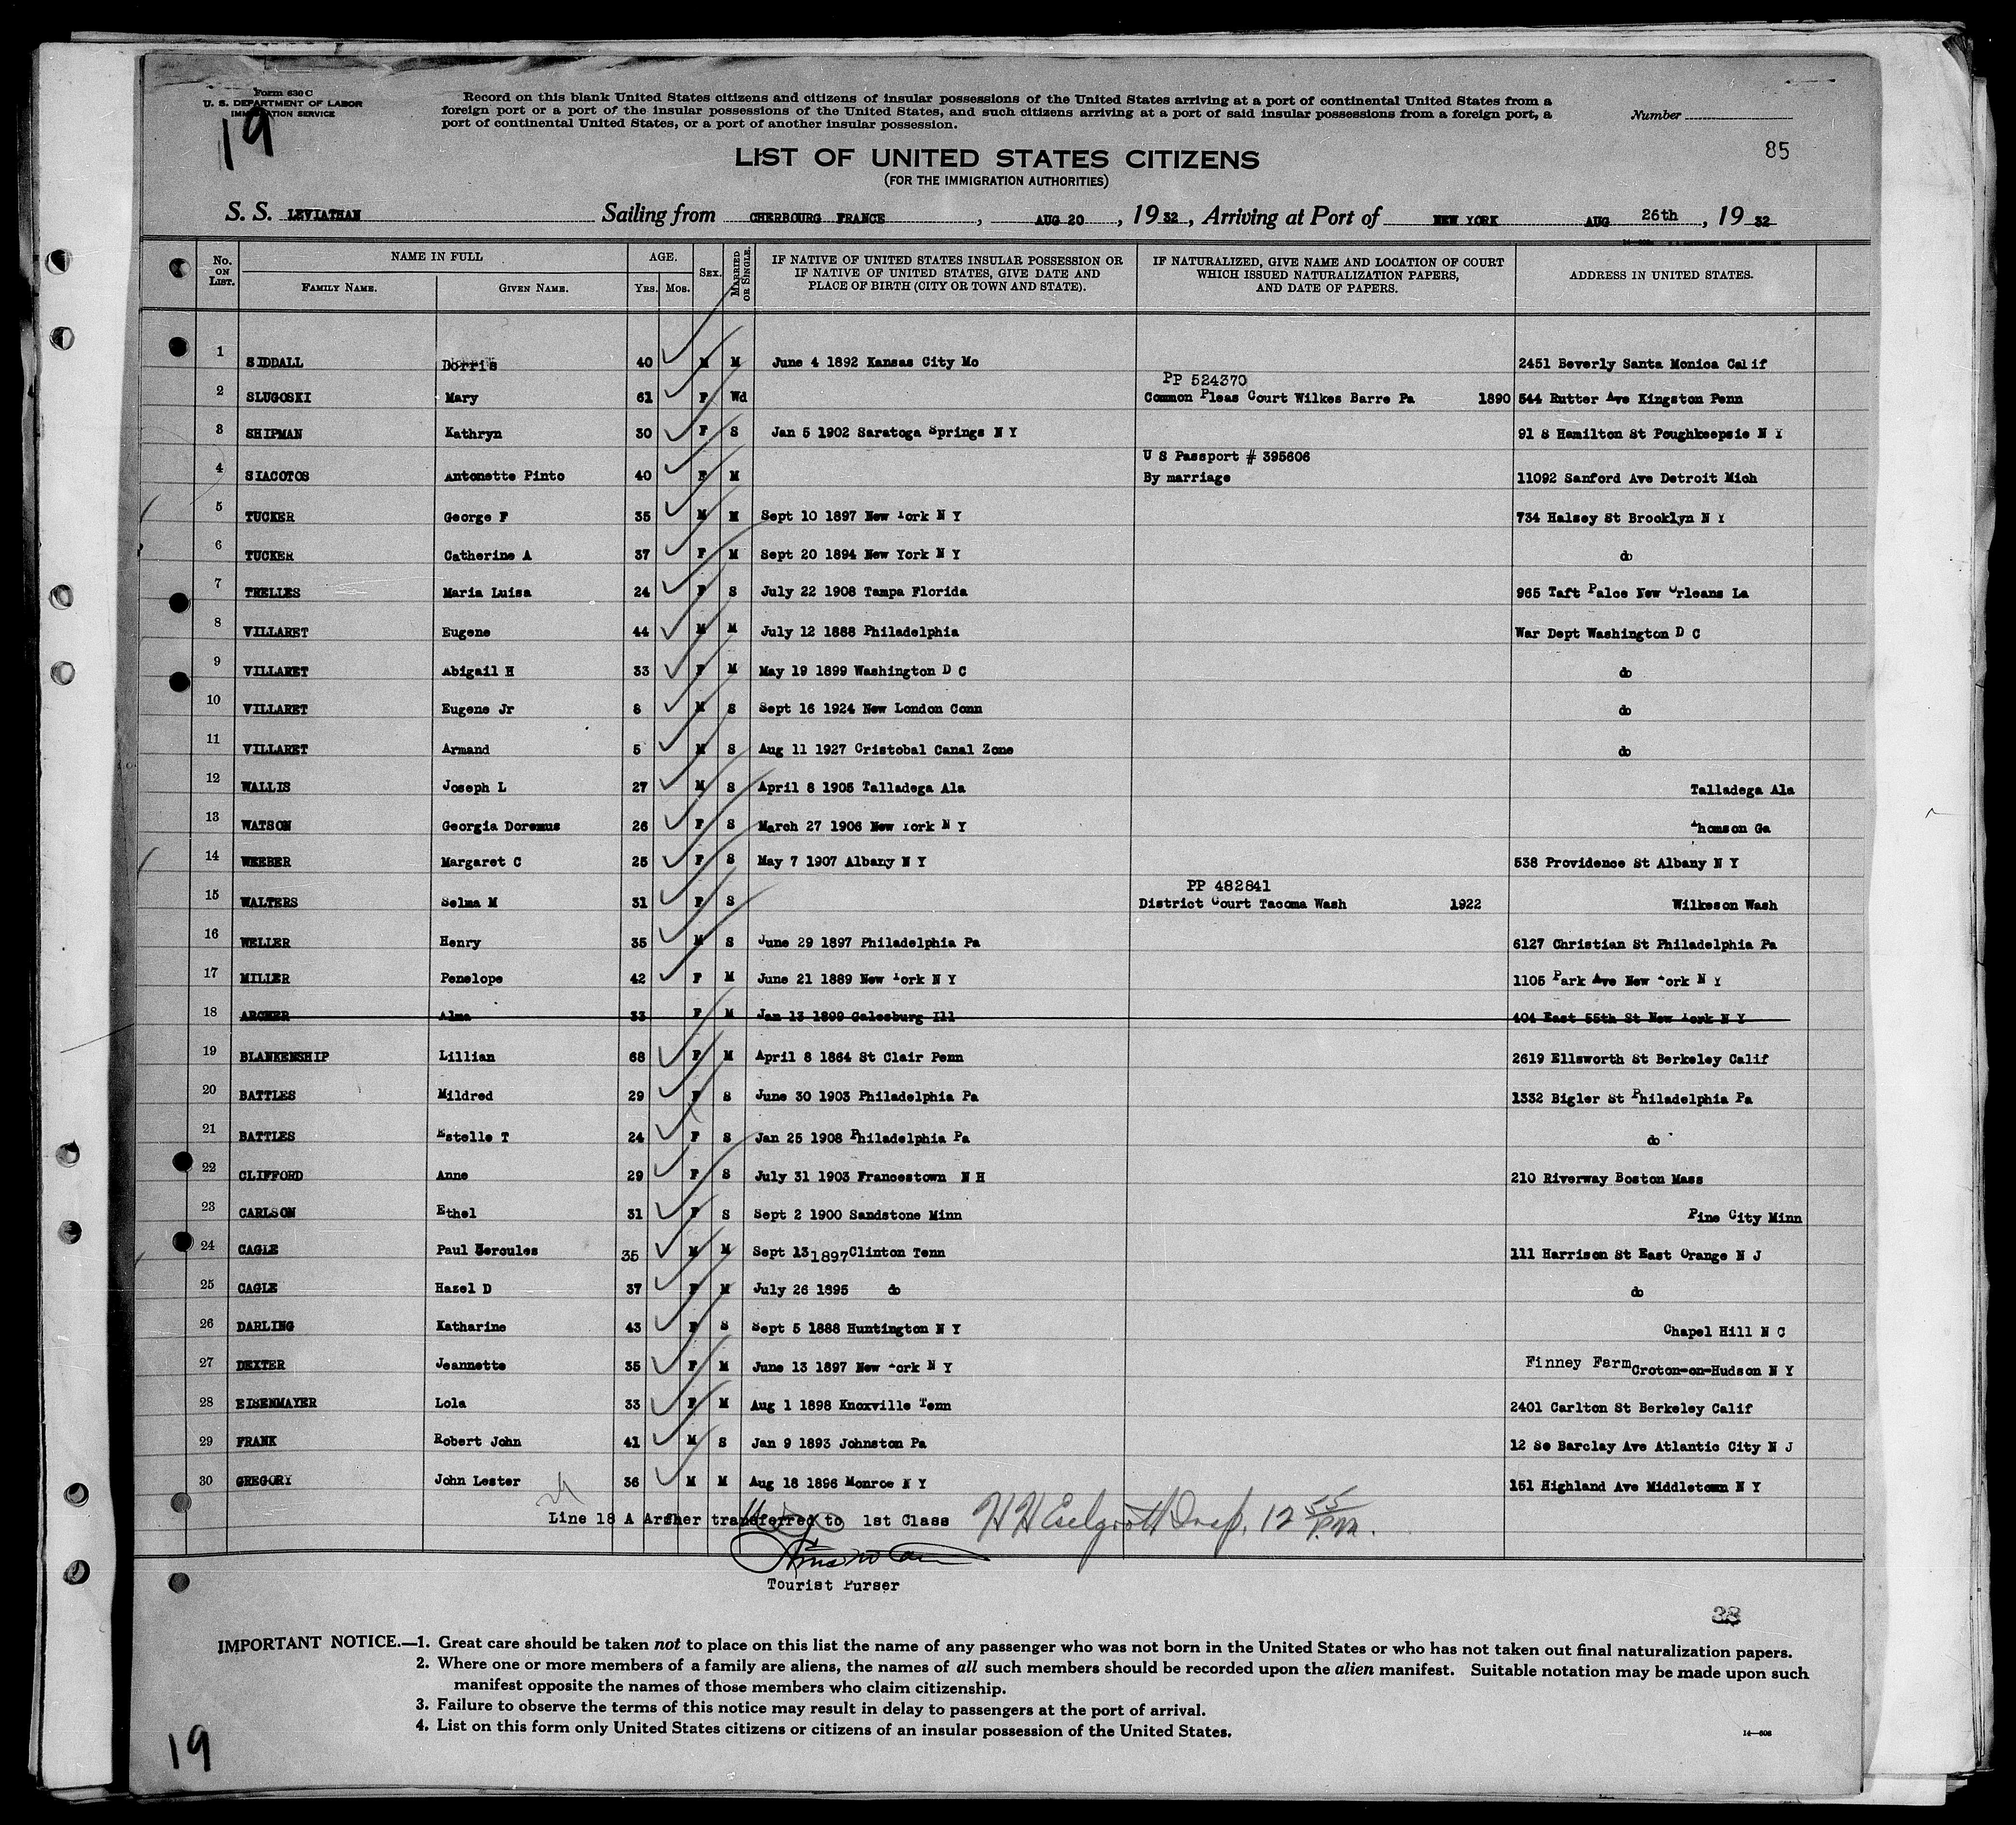 Form 630 C
U. S. DEPARTMENT OF LABOR
IMMIGRATION SERVICE
19
Record on this blank United States citizens and citizens of insular possessions of the United States arriving at a port of continental United States from a
foreign port or a port of the insular possessions of the United States, and such citizens arriving at a port of said insular possessions from a foreign port, a
port of continental United States, or a port of another insular possession.
Number
85
LIST OF UNITED STATES CITIZENS
(FOR THE IMMIGRATION AUTHORITIES)
S. S. LEVIATHAN Sailing from CHERBOURG FRANCE, AUG 20, 1932, Arriving at Port of NEW YORK AUG 26th, 1932
No. ON LIST. NAME IN FULL FAMILY NAME. GIVEN NAME. AGE. YRS. MOS. SEX. MARRIED OR SINGLE. IF NATIVE OF UNITED STATES INSULAR POSSESSION OR IF NATIVE OF UNITED STATES, GIVE DATE AND PLACE OF BIRTH (CITY OR TOWN AND STATE). IF NATURALIZED, GIVE NAME AND LOCATION OF COURT WHICH ISSUED NATURALIZATION PAPERS, AND DATE OF PAPERS. ADDRESS IN UNITED STATES.
1 SIDDALL Dorris 40 M M June 4 1892 Kansas City Mo 2451 Beverly Santa Monica Calif
PP 524370
2 SLUGOSKI Mary 61 F Wd Common Pleas Court Wilkes Barre Pa 1890 544 Rutter Ave Kingston Penn
3 SHIPMAN Kathryn 30 F S Jan 5 1902 Saratoga Springs N Y 91 S Hamilton St Poughkeepsie N Y
U S Passport # 395606
4 SIACOTOS Antonette Pinto 40 F M By marriage 11092 Sanford Ave Detroit Mich
5 TUCKER George F 35 M M Sept 10 1897 New York N Y 734 Halsey St Brooklyn N Y
6 TUCKER Catherine A 37 F M Sept 20 1894 New York N Y do
7 TRELLES Maria Luisa 24 F S July 22 1908 Tampa Florida 965 Taft Palce New Orleans La
8 VILLARET Eugene 44 M M July 12 1888 Philadelphia War Dept Washington D C
9 VILLARET Abigail H 33 F M May 19 1899 Washington D C do
10 VILLARET Eugene Jr 8 M S Sept 16 1924 New London Conn do
11 VILLARET Armand 5 M S Aug 11 1927 Cristobal Canal Zone do
12 WALLIS Joseph L 27 M S April 8 1905 Talladega Ala Talladega Ala
13 WATSON Georgia Doremus 26 F S March 27 1906 New York N Y Thomson Ga
14 WEEBER Margaret C 25 F S May 7 1907 Albany N Y 538 Providence St Albany N Y
PP 482841
15 WALTERS Selma M 31 F S District Court Tacoma Wash 1922 Wilkeson Wash
16 WELLER Henry 35 M S June 29 1897 Philadelphia Pa 6127 Christian St Philadelphia Pa
17 MILLER Penelope 42 F M June 21 1889 New York N Y 1105 Park Ave New York N Y
18 ARCHER Alma 33 F M Jan 13 1899 Galesburg Ill 404 East 55th St New York N Y
19 BLANKENSHIP Lillian 68 F M April 8 1864 St Clair Penn 2619 Ellsworth St Berkeley Calif
20 BATTLES Mildred 29 F S June 30 1903 Philadelphia Pa 1332 Bigler St Philadelphia Pa
21 BATTLES Estelle T 24 F S Jan 25 1908 Philadelphia Pa do
22 CLIFFORD Anne 29 F S July 31 1903 Francestown N H 210 Riverway Boston Mass
23 CARLSON Ethel 31 F S Sept 2 1900 Sandstone Minn Pine City Minn
24 CAGLE Paul Hercules 35 M M Sept 13 1897 Clinton Tenn 111 Harrison St East Orange N J
25 CAGLE Hazel D 37 F M July 26 1895 do do
26 DARLING Katharine 43 F S Sept 5 1888 Huntington N Y Chapel Hill N C
27 DEXTER Jeannette 35 F M June 13 1897 New York N Y Finney Farm Croton-on-Hudson N Y
28 EISENMAYER Lola 33 F M Aug 1 1898 Knoxville Tenn 2401 Carlton St Berkeley Calif
29 FRANK Robert John 41 M S Jan 9 1893 Johnston Pa 12 So Barclay Ave Atlantic City N J
30 GREGORY John Lester 36 M M Aug 18 1896 Monroe N Y 151 Highland Ave Middletown N Y
Line 18 A Archer transferred to 1st Class 12 55 P.M.
Tourist Purser
38
IMPORTANT NOTICE.—1. Great care should be taken not to place on this list the name of any passenger who was not born in the United States or who has not taken out final naturalization papers.
2. Where one or more members of a family are aliens, the names of all such members should be recorded upon the alien manifest. Suitable notation may be made upon such
manifest opposite the names of those members who claim citizenship.
3. Failure to observe the terms of this notice may result in delay to passengers at the port of arrival.
4. List on this form only United States citizens or citizens of an insular possession of the United States.
14—608
19